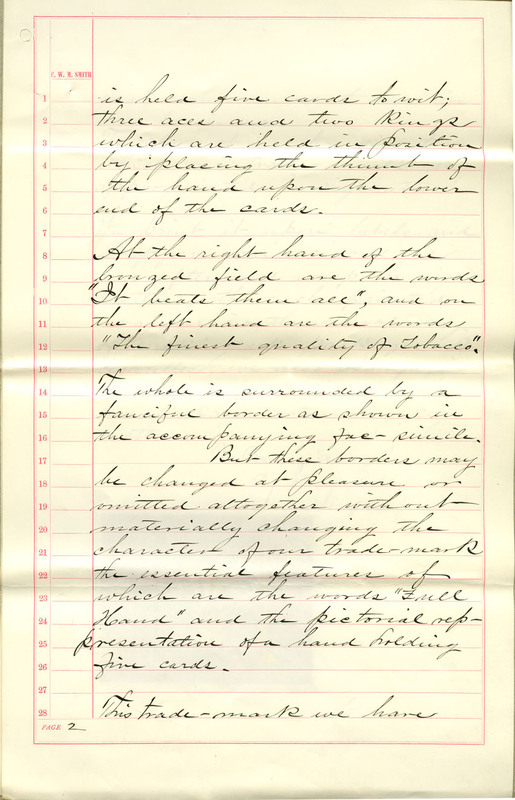 C. W. M. SMITH
1 is held five cards to wit;
2 three aces and two Kings
3 which are held in position
4 by plasing the thumb of
5 the hand upon the lower
6 end of the cards.
7
8 At the right hand of the
9 bronzed field are the words
10 "It beats them all", and on
11 the left hand are the words
12 "The finest quality of Tobacco".
13
14 The whole is surrounded by a
15 fanciful border as shown in
16 the accompanying fac-simile.
17 But these borders may
18 be changed at pleasure or
19 omitted altogether without
20 materially changing the
21 character of our trade-mark
22 the essential features of
23 which are the words "Full
24 Hand" and the pictorial rep-
25 presentation of a hand holding
26 five cards.
27
28 This trade-mark we have
PAGE 2